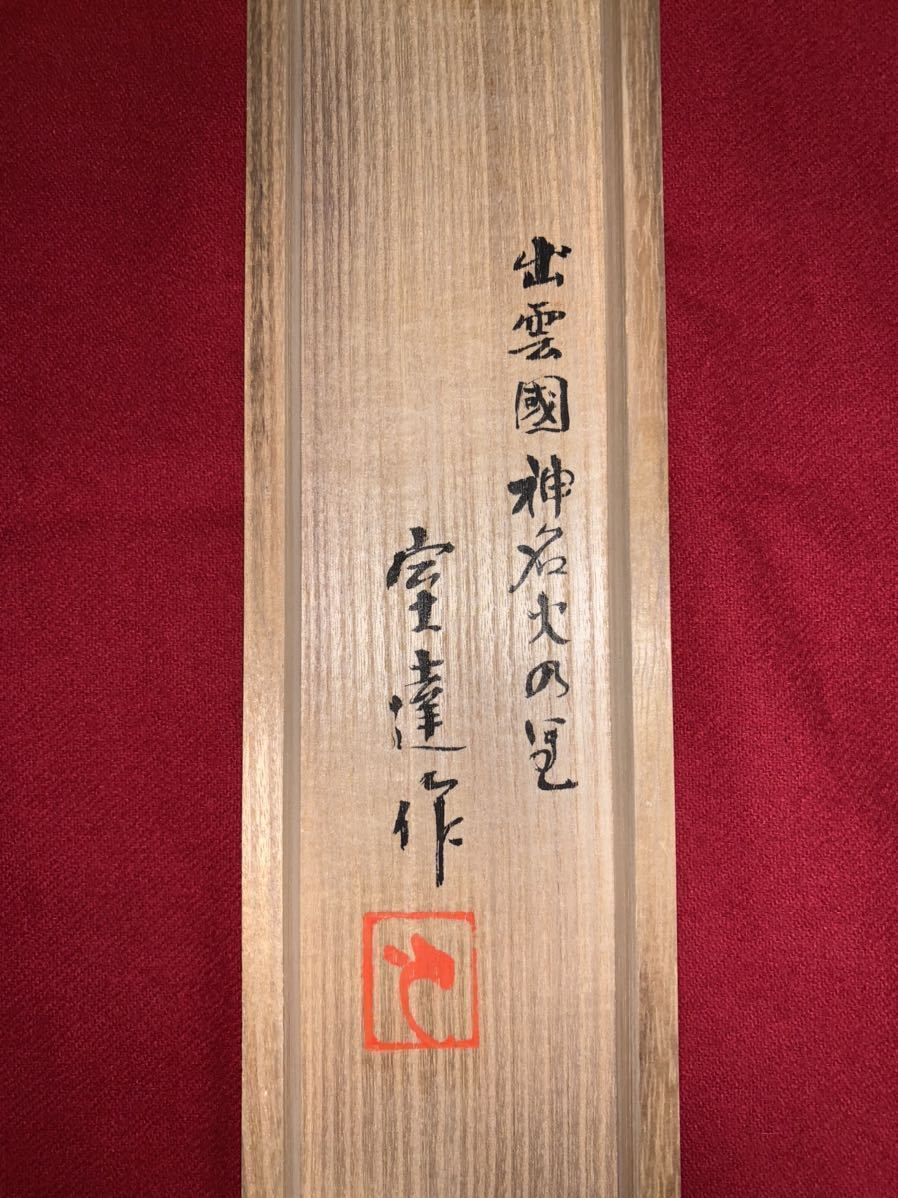 出雲國神名火の里
宝達作